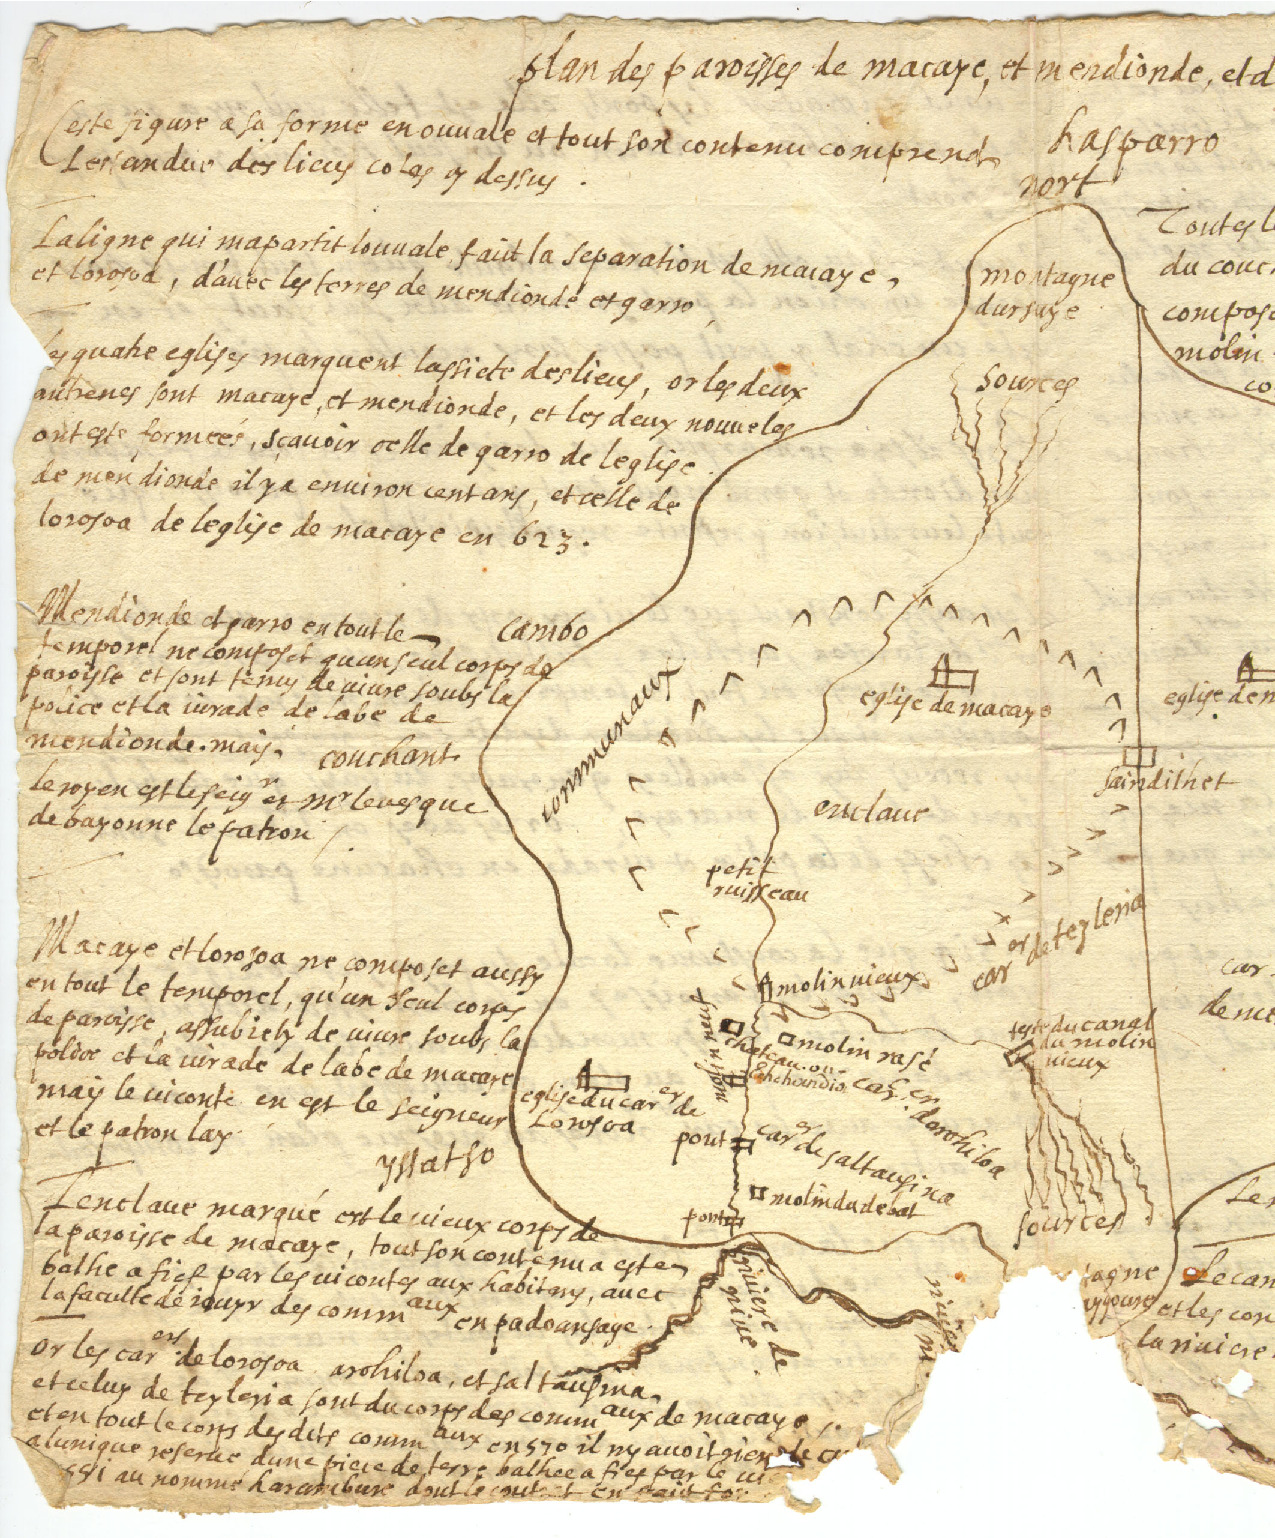 plan des paroisses de macaye, et mendionde, et d
Ceste figure a sa forme en ouuale et tout son contenu comprend
Lestandue des lieus cotes cy dessus.
La ligne qui mapartit louuale, faut la separation de macaye,
et lorosoa, d'auec les terres de mendionde et garro
les quatre eglises marquent lassiete des lieus, or les deux
antienes sont macaye, et mendionde, et les deux nouueles
ont este formées, sçauoir celle de garro de leglise
de mendionde il y a enuiron cent ans, et celle de
lorosoa de leglise de macaye en 623.
Mendionde et garro en tout le
temporel ne composet qu'un seul corps de
paroisse et sont tenus de uiure soubs la
police et la iurade de labe de
mendionde. mais
le roy en est le seigr et mr leuesque
de bayonne le patron
Macaye et lorosoa ne composet aussy
en tout le temporel, qu'un seul corps
de paroisse, assubiets de uiure soubs la
police et la iurade de labe de macaye
mais le uiconte en est le seigneur
et le patron lay
Lenclaue marqué est le uieux corps de
la paroisse de macaye, tout son contenu a este
balhe a fief par les uicontes aux habitans, auec
la faculte de iouyr des commaux en padoansage.
Or les carers de lorosoa arohiloa, et saltausina
et celuy de teyleria sont du corps des commaux de macaye
et en tout le corps des dits commaux en 570 il ny auoit rien de
a lunique reserue dune piece de terre balhee a fief par le ui
551 au nommé harambure dont le
hasparro
nort
montagne
dursuye
sources
Toutes l
du couch
compose
molin
co
cambo
couchant
communaux
eglise de macaye
eglise de m
saindithet
enclaue
petit
ruisseau
carer de teyleria
molin uieux
molin rasé
teste du canal
du molin
uieux
chateau
carer
darohiloa
eglise du carer de
Lorosoa
pont
carer de saltausina
molin du debat
pont
yssatso
sources
riuiere de
niue
car
de me
Le
Le can
et les con
la riuiere